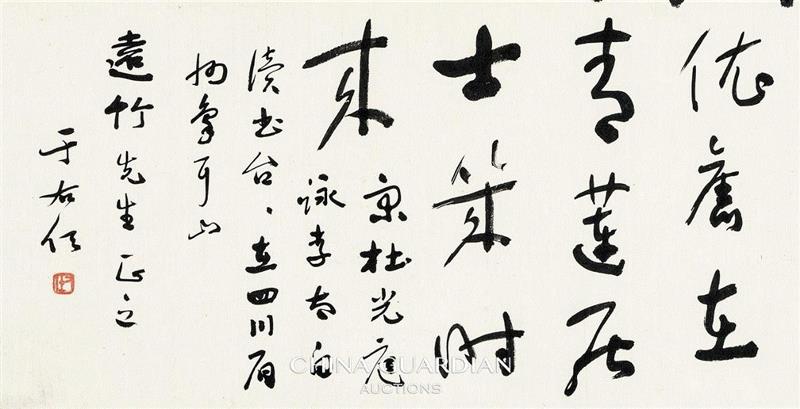 依舊在
青蓮居
士幾時
来
宋杜光庭
詠李太白
讀書台、在四川眉
州象耳山
遠竹先生正之
于右任
CHINA GUARDIAN
AUCTIONS